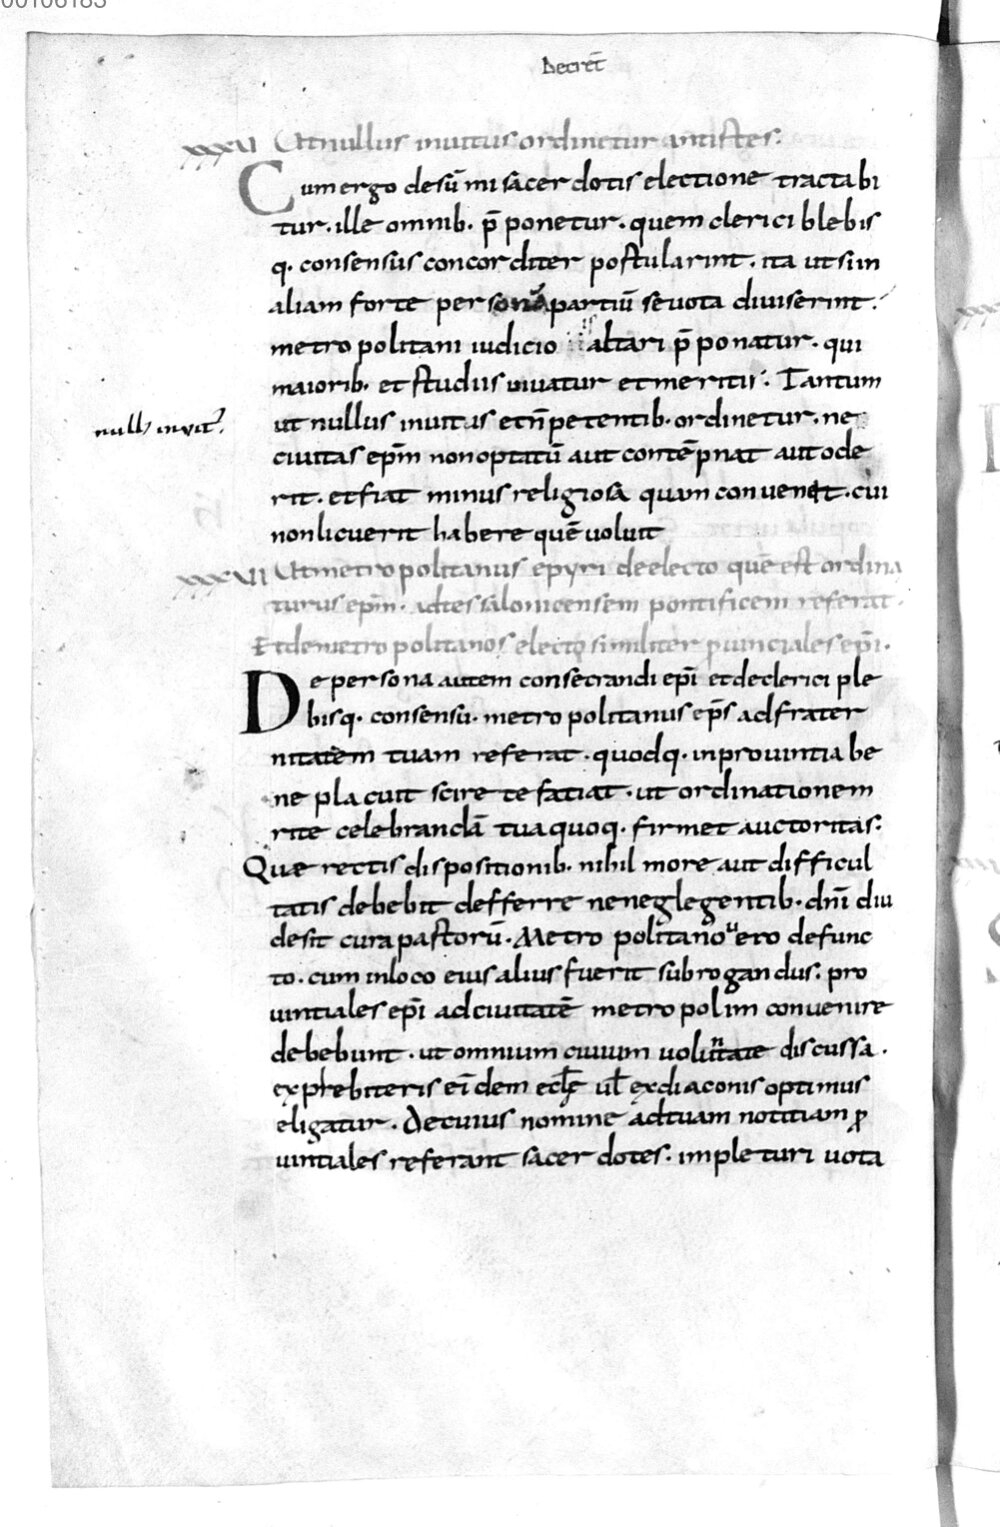 00106183
Decret̄
XXXVI Ut nullus inuitus ordinetur antistes.
Cum ergo de sūmi sacerdotis electione tractabi
tur. ille omnib. p̄ponetur. quem clerici blebis
q. consensus concorditer postularint. ita ut si in
aliam forte personā partiū se uota diuiserint.
metropolitani iudicio is altari p̄ponatur. qui
maiorib. et studiis iuuatur et meritis. Tantum
ut nullus inuitus et n̄ petentib. ordinetur. ne
null' inuit'.
ciuitas ep̄m non optatū aut contēpnat aut ode
rit. et fiat minus religiosa quam conuenit. cui
non licuerit habere quē uoluit
XXXVII Ut metropolitanus epyri de electo quē est ordina
turus ep̄m. ad tessalonicensem pontificem referat.
Et de metropolitanos electo similiter puinciales ep̄i.
De persona autem consecrandi ep̄i et de clerici ple
bisq. consensu. metropolitanus ep̄s ad frater
nitatem tuam referat. quodq. in prouintia be
ne placuit scire te fatiat. ut ordinationem
rite celebrandā tua quoq. firmet auctoritas.
Quae rectis dispositionib. nihil more aut difficul
tatis debebit defferre ne neglegentib. dn̄i diu
desit cura pastorū. Metropolitano uero defunc
to. cum in loco eius alius fuerit subrogandus. pro
uintiales ep̄i ad ciuitatē metropolim conuenire
debebunt. ut omnium ciuium uoluntate discussa.
ex p̄rbiteris eīdem eccl̄ę ul̄ ex diaconis optimus
eligatur. De cuius nomine ad tuam notitiam ꝓ
uintiales referant sacerdotes. impleturi uota